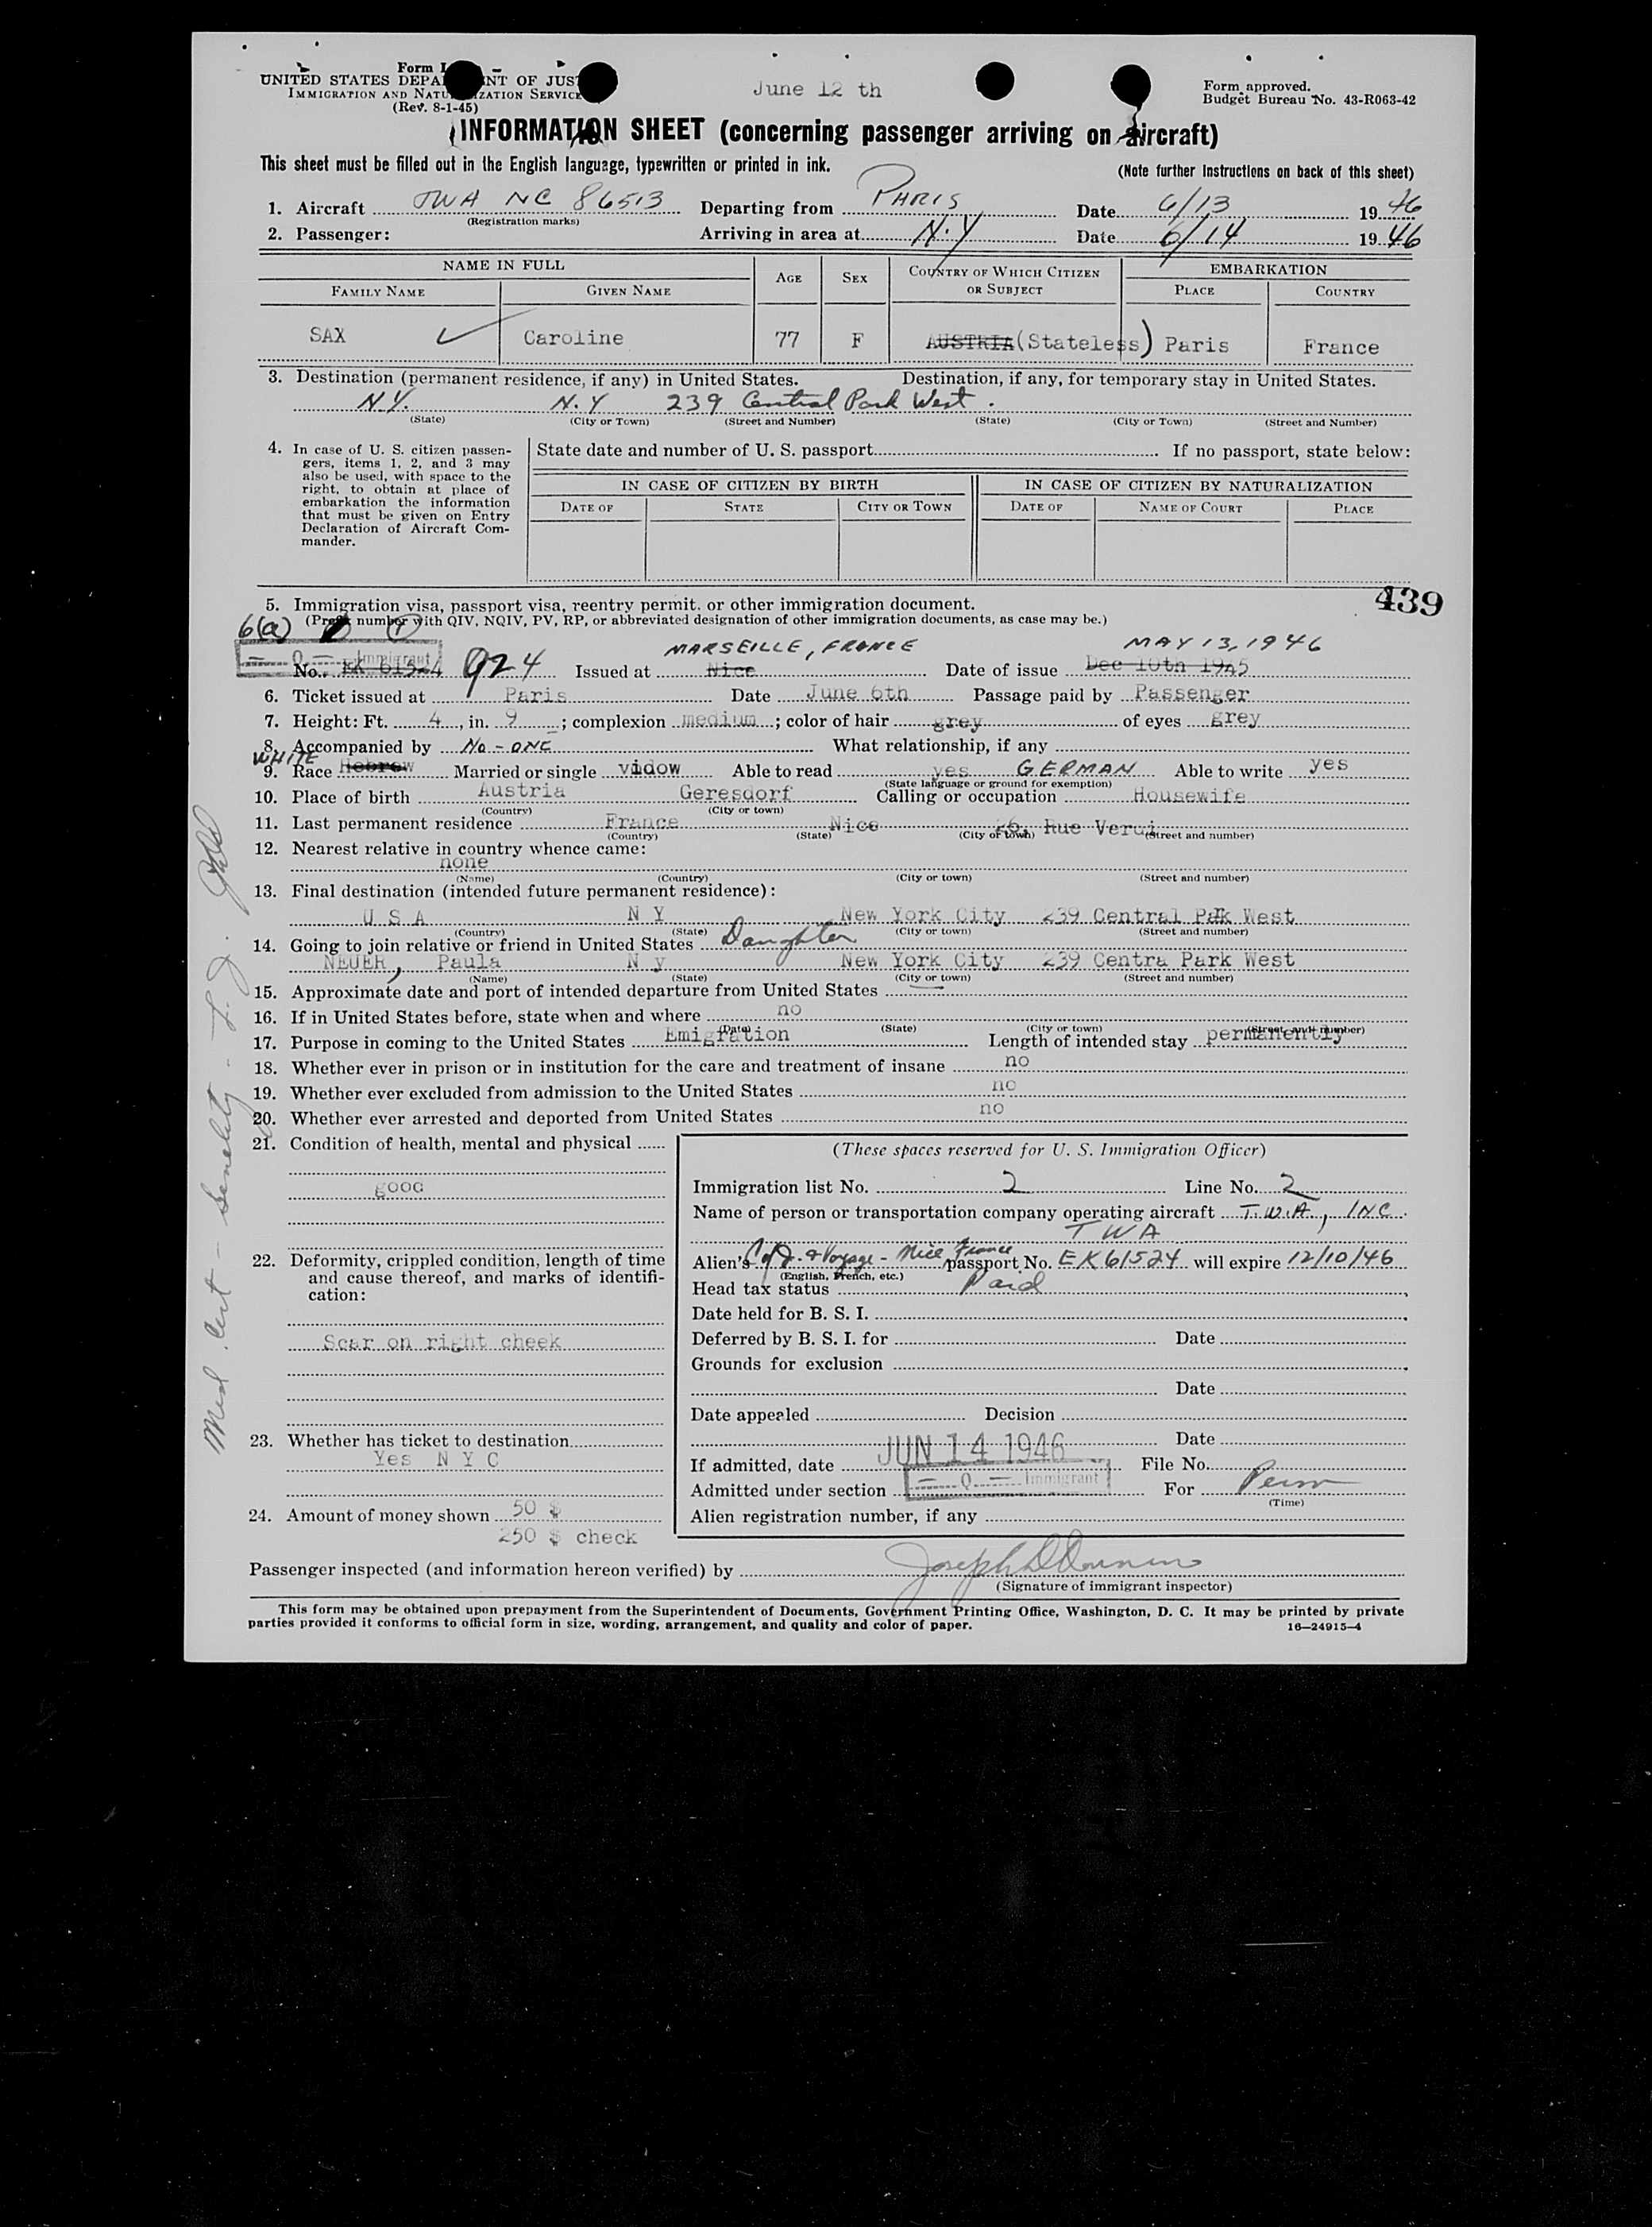 Form I
UNITED STATES DEPA NT OF JUS
IMMIGRATION AND NATU ZATION SERVICE
(Rev. 8-1-45)
June 12 th
Form approved.
Budget Bureau No. 43-R063-42
INFORMATION SHEET (concerning passenger arriving on aircraft)
This sheet must be filled out in the English language, typewritten or printed in ink.
(Note further instructions on back of this sheet)
1. Aircraft TWA NC 86513 Departing from PARIS Date 6/13 1946
(Registration marks)
2. Passenger: Arriving in area at N.Y Date 6/14 1946
NAME IN FULL AGE SEX COUNTRY OF WHICH CITIZEN OR SUBJECT EMBARKATION
FAMILY NAME GIVEN NAME PLACE COUNTRY
SAX Caroline 77 F AUSTRIA (Stateless) Paris France
3. Destination (permanent residence, if any) in United States. Destination, if any, for temporary stay in United States.
N.Y. N.Y 239 Central Park West.
(State) (City or Town) (Street and Number) (State) (City or Town) (Street and Number)
4. In case of U. S. citizen passengers, items 1, 2, and 3 may also be used, with space to the right, to obtain at place of embarkation the information that must be given on Entry Declaration of Aircraft Commander.
State date and number of U. S. passport If no passport, state below:
IN CASE OF CITIZEN BY BIRTH IN CASE OF CITIZEN BY NATURALIZATION
DATE OF STATE CITY OR TOWN DATE OF NAME OF COURT PLACE
439
5. Immigration visa, passport visa, reentry permit, or other immigration document.
6(a) (Prefix number with QIV, NQIV, PV, RP, or abbreviated designation of other immigration documents, as case may be.)
— Q — Immigrant
MARSEILLE, FRANCE MAY 13, 1946
No. EK 61524 924 Issued at Nice Date of issue Dec 10th 1945
6. Ticket issued at Paris Date June 6th Passage paid by Passenger
7. Height: Ft. 4, in. 9; complexion medium; color of hair grey of eyes grey
8. Accompanied by No-one What relationship, if any
WHITE
9. Race Hebrew Married or single widow Able to read yes GERMAN Able to write yes
(State language or ground for exemption)
10. Place of birth Austria Geresdorf Calling or occupation Housewife
(Country) (City or town)
11. Last permanent residence France Nice 26, Rue Verdi
(Country) (State) (City or town) (Street and number)
12. Nearest relative in country whence came:
none
(Name) (Country) (City or town) (Street and number)
13. Final destination (intended future permanent residence):
U S A N Y New York City 239 Central Park West
(Country) (State) (City or town) (Street and number)
14. Going to join relative or friend in United States Daughter
NEUER, Paula N y New York City 239 Centra Park West
(Name) (State) (City or town) (Street and number)
15. Approximate date and port of intended departure from United States —
16. If in United States before, state when and where no
(Date) (State) (City or town) (Street and number)
17. Purpose in coming to the United States Emigration Length of intended stay permanently
18. Whether ever in prison or in institution for the care and treatment of insane no
19. Whether ever excluded from admission to the United States no
20. Whether ever arrested and deported from United States no
21. Condition of health, mental and physical
good
22. Deformity, crippled condition, length of time and cause thereof, and marks of identification:
Scar on right cheek
23. Whether has ticket to destination
Yes N Y C
24. Amount of money shown 50 $
250 $ check
(These spaces reserved for U. S. Immigration Officer)
Immigration list No. 2 Line No. 2
Name of person or transportation company operating aircraft T.W.A., INC.
TWA
Alien's C of I. & Voyage - Nice France passport No. EK61524 will expire 12/10/46
(English, French, etc.)
Head tax status Paid
Date held for B. S. I.
Deferred by B. S. I. for Date
Grounds for exclusion
Date
Date appealed Decision
Date
If admitted, date JUN 14 1946 File No.
Admitted under section — Q — Immigrant For Perm
(Time)
Alien registration number, if any
Med. Cert - Senility -
Passenger inspected (and information hereon verified) by
(Signature of immigrant inspector)
This form may be obtained upon prepayment from the Superintendent of Documents, Government Printing Office, Washington, D. C. It may be printed by private
parties provided it conforms to official form in size, wording, arrangement, and quality and color of paper.
16—24915-4